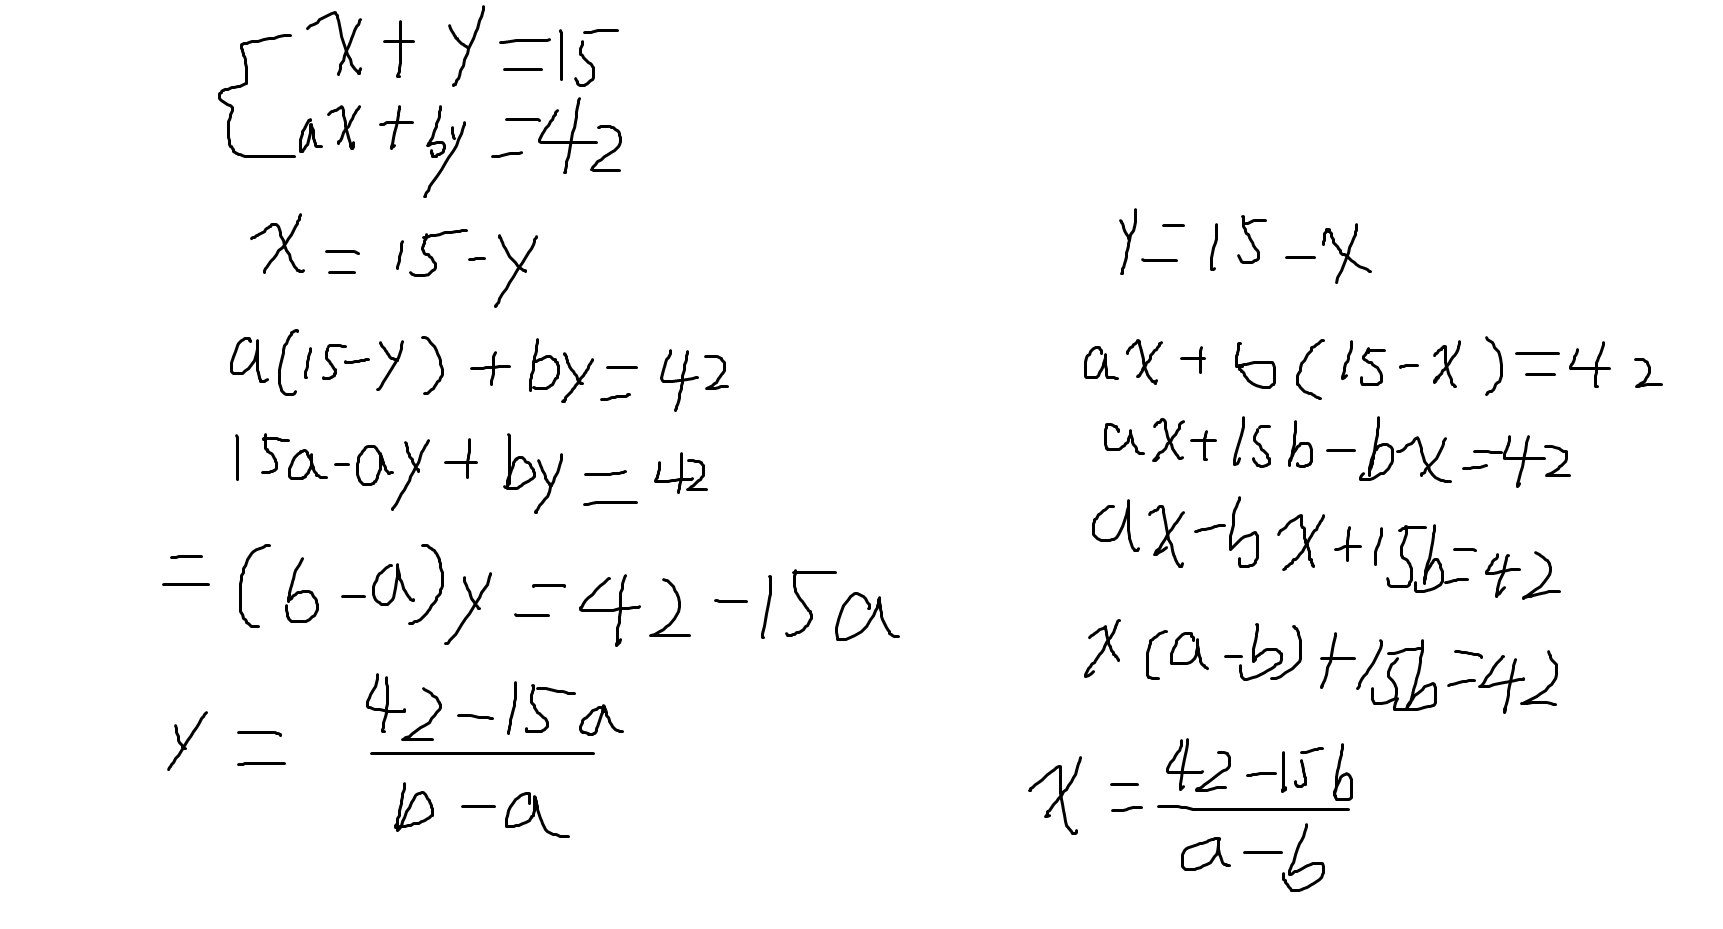 x + y = 15
ax + by = 42
x = 15 - y
a(15-y) + by = 42
15a - ay + by = 42
= (b-a)y = 42 - 15a
y = \frac{42-15a}{b-a}
y = 15 - x
ax + b(15-x) = 42
ax + 15b - bx = 42
ax - bx + 15b = 42
x(a-b) + 15b = 42
x = \frac{42-15b}{a-b}